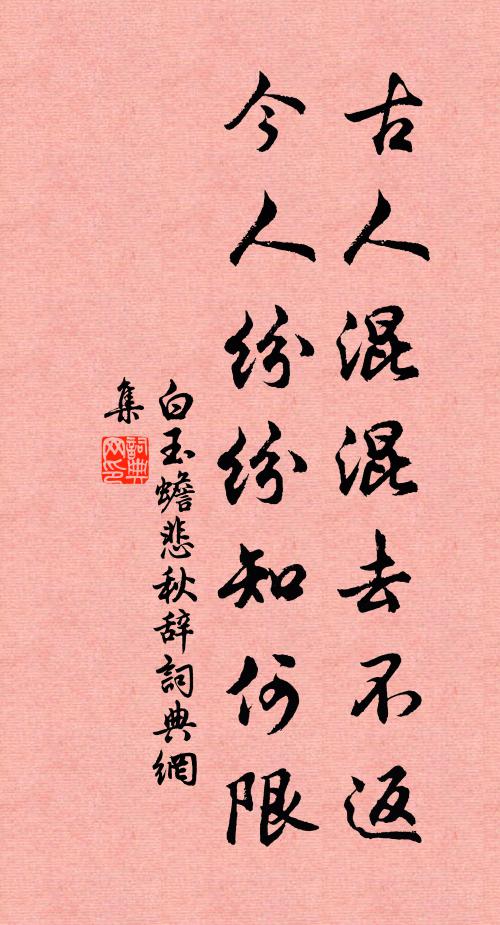 古人混混去不返
今人纷纷知何限
白玉蟾悲秋辞詞典網
集
詞典
网印